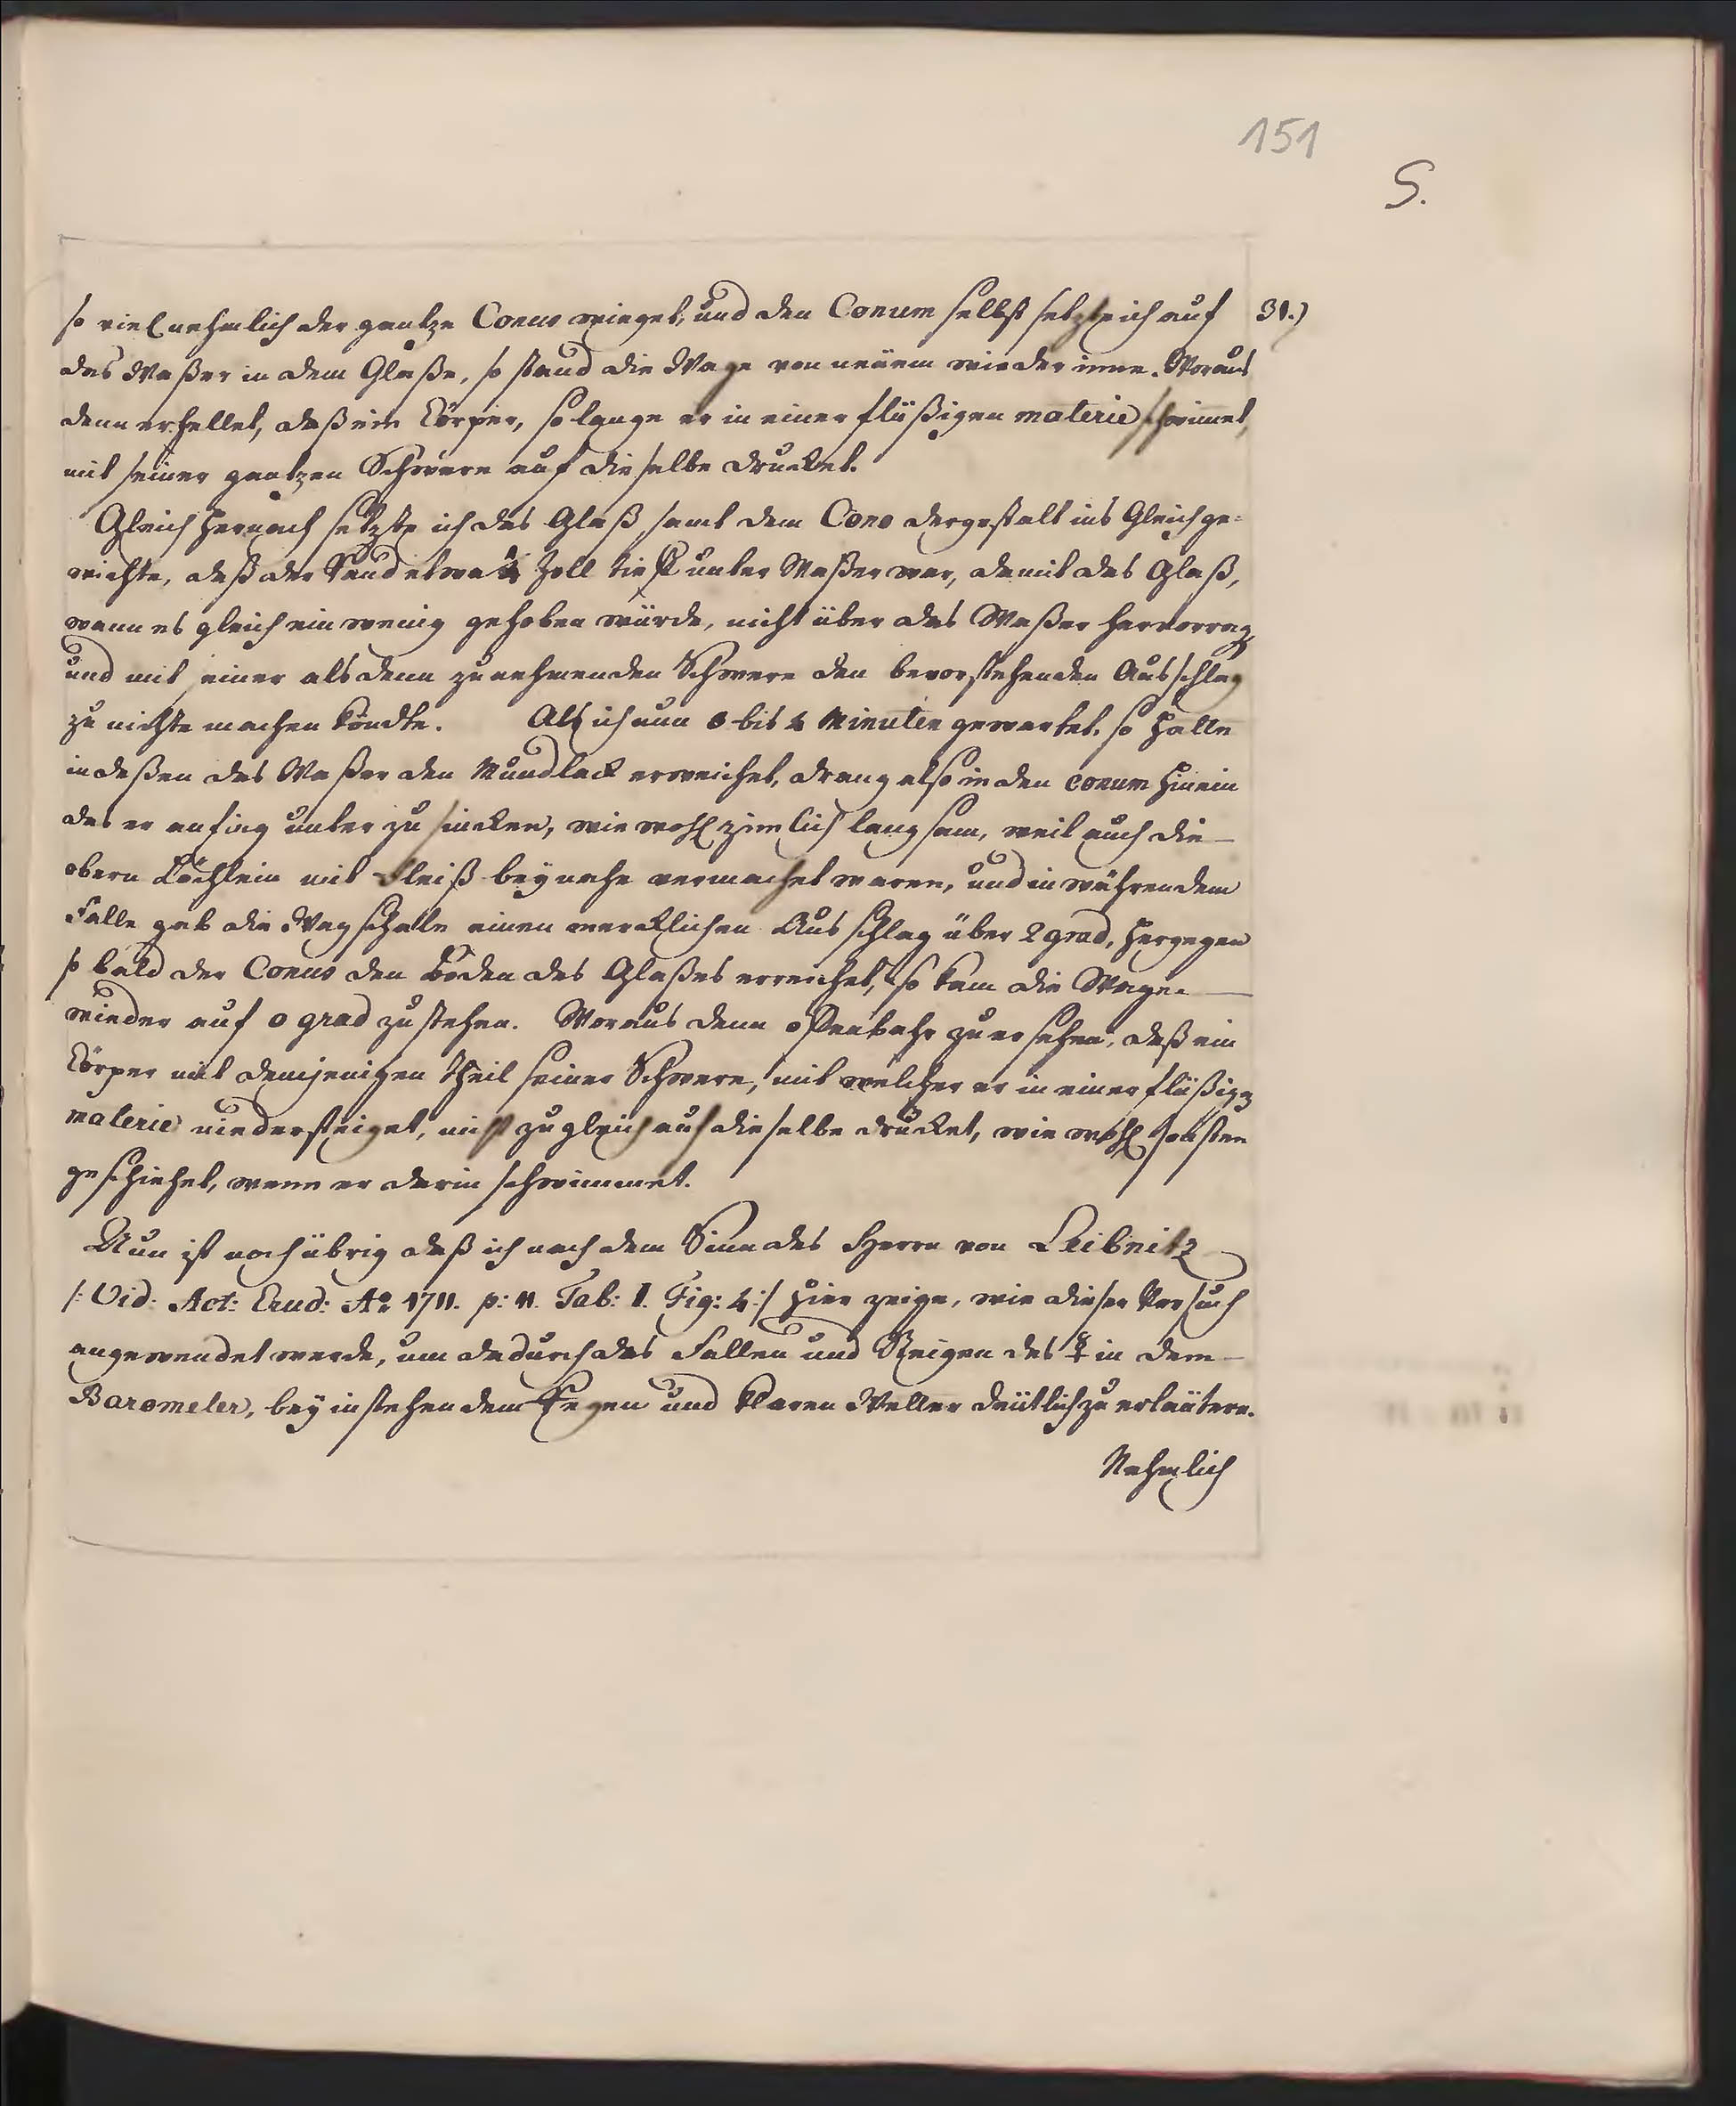 151
S.
so viel nehmlich der gantze Conus wieget, und den Conum selbst setzte ich auf 31.)
das Waßer in dem Glaße, so stand die Wage von neüem wieder inne. Woraus
denn erhellet, daß ein Cörper, so lange er in einer flüßigen materie schwimet,
mit seiner gantzen Schwere auf dieselbe drucket.
Gleich hernach setzte ich das Glaß samt dem Cono dergestalt ins Gleichge-
wichte, daß der Rand etwa Zoll tieff unter Waßer war, damit das Glaß,
wann es gleich ein wenig gehoben würde, nicht über das Waßer hervorrag,
und mit seiner als denn zunehmenden Schwere den bevorstehenden Ausschlag
zu nichte machen köndte. Als ich nun 3 bis 4 Minuten gewartet, so hatte
indeßen das Waßer den Mundlack erweichet, drang also in den conum hinein
das er anfing unter zu sincken, wie wohl zimlich langsam, weil auch die
obern Löchlein mit Fleiß beynahe vermachet waren, und in währendem
Falle gab die Wagschale einen mercklichen Ausschlag über 2 grad, hergegen
so bald der Conus den Boden des Glaßes erreichet, so kam die Wage
wieder auf 0 grad zu stehen. Woraus denn offenbahr zu ersehen, daß ein
Cörper mit demjenigen theil seiner Schwere, mit welcher er in einer flüßigen
materie niedersteiget, nicht zugleich auf dieselbe drucket, wie wohl sonsten
geschiehet, wenn er darin schwimmet.
Nun ist noch übrig daß ich nach dem Sinn des Herrn von Leibnitz
/: Vid: Act: Erud: Ao. 1711. p: 11. Tab: I. Fig: 4 :/ hier zeige, wie dieser Versuch
angewendet werde, um dadurch das Fallen und Steigen des ☿ in dem
Barometer, bey instehendem Regen und klaren Wetter deütlich zu erläutern.
Nehmlich